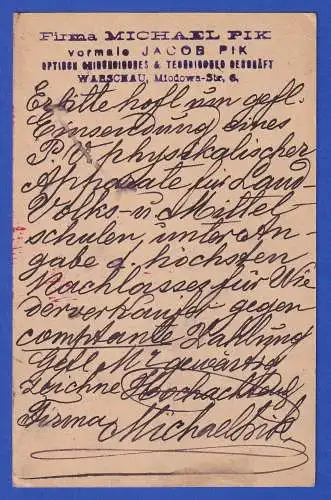 Firma MICHAEL PIK
vormals JACOB PIK
OPTISCH CHIRURGISCHES & TECHNISCHES GESCHÄFT
WARSCHAU, Miodowa-Str. 6.
Erbitte höfl. um gefl.
Einsendung eines
P. C. physikalischer
Apparate für Land-
Volks- u. Mittel-
schulen, unter An-
gabe d. höchsten
Nachlasses für Wie
derverkäufer gegen
comptante Zahlung
Gefl. gewärtig
zeichne Hochachtend
Firma
Michael Pik